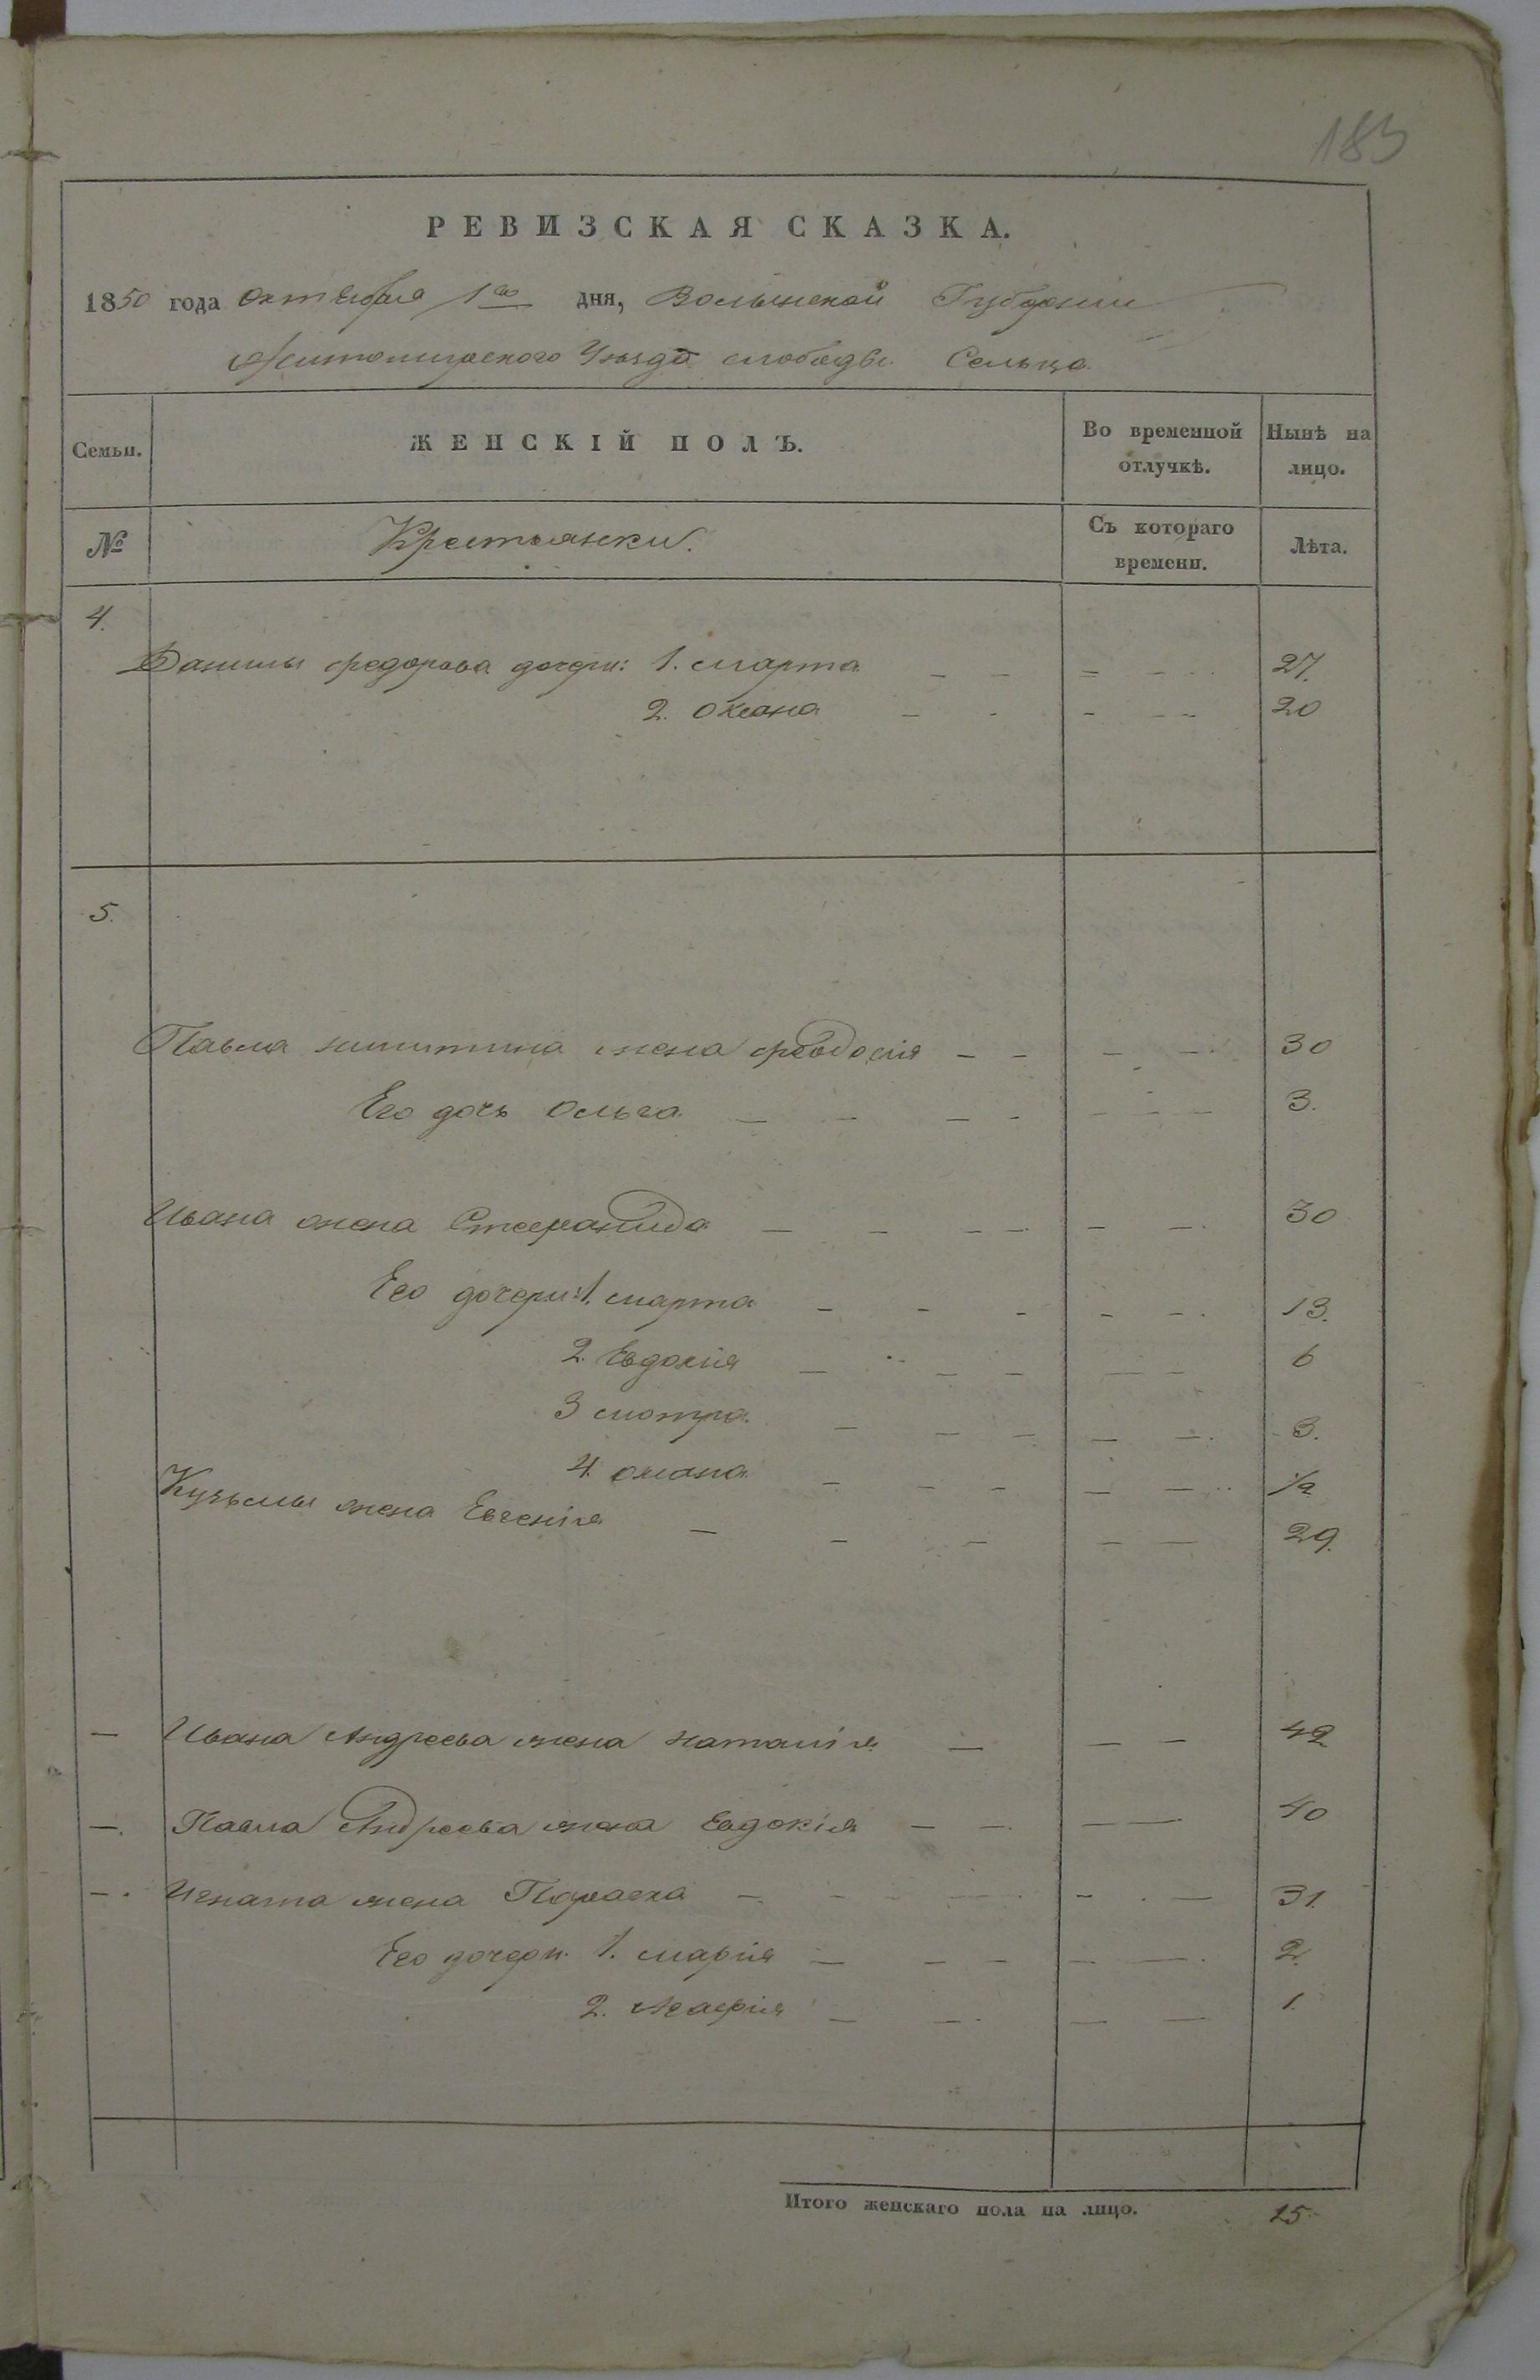 183
РЕВИЗСКАЯ СКАЗКА.
1850 года октября 1го дня, Волынской Губернии
Житомирского Уезда слободы Сельца
Семьи. ЖЕНСКІЙ ПОЛЪ. Во временной отлучкѣ. Нынѣ на лицо.
№ Крестьянки. Съ котораго времени. Лѣта.
4.
Данилы Федорова дочери: 1. Марта — — — — 27.
2. Оксана — — — — 20
5.
Павла Никитина жена Феодосія — — — — 30
Его дочь Ольга — — — — 3.
Ивана жена Стефанида — — — — 30
Его дочери: 1. Марта — — — — 13.
2. Евдокія — — — — 6
3 Мотря — — — — 3.
4. Оксана — — — — 1/2
Кузьмы жена Евгенія — — — — 29.
— Ивана Андреева жена Наталія — — — 42
—. Павла Андреева жена Евдокія — — — — 40
—. Игната жена Параска — — — — 31.
Его дочери. 1. Марія — — — — 2.
2. Агафія — — — — 1.
Итого женскаго пола на лицо. 15.